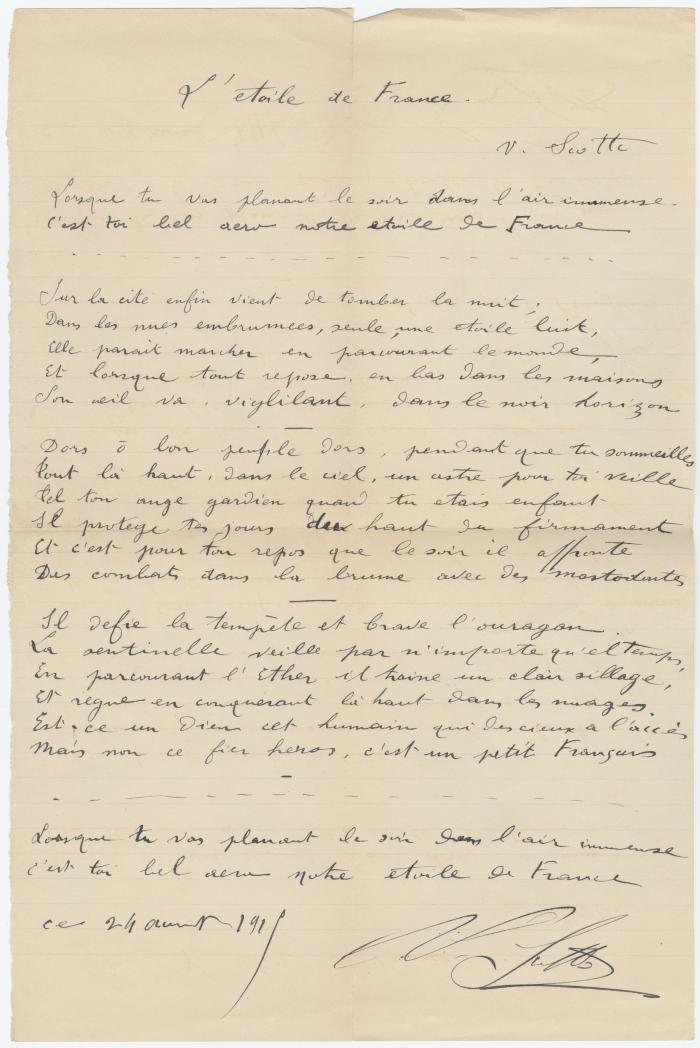 L'etoile de France.
V. Scotto
Lorsque tu vas planant le soir dans l'air immense.
C'est toi bel aero notre etoile de France
Sur la cité enfin vient de tomber la nuit ;
Dans les nues embrumees, seule, une etoile luit,
Elle parait marcher en parcourant le monde,
Et lorsque tout repose. en bas dans les maisons
Son oeil va, vigilant, dans le noir horizon
Dors ô bon peuple dors, pendant que tu sommeilles
Tout là haut, dans le ciel, un astre pour toi veille
Tel ton ange gardien quand tu etais enfant
Il protege tes jours du haut du firmament
Et c'est pour ton repos que le soir il affronte
Des combats dans la brume avec des mastodontes
Il defie la tempête et brave l'ouragan.
La sentinelle veille par n'importe qu'el temps,
En parcourant l'Ether il traine un clair sillage,
Et règne en conquerant là haut dans les nuages.
Est-ce un Dieu cet humain qui des cieux a l'accès
Mais non ce fier heros, c'est un petit Français
Lorsque tu vas planant le soir dans l'air immense
C'est toi bel aero notre etoile de France
ce 24 1915
V. Scotto